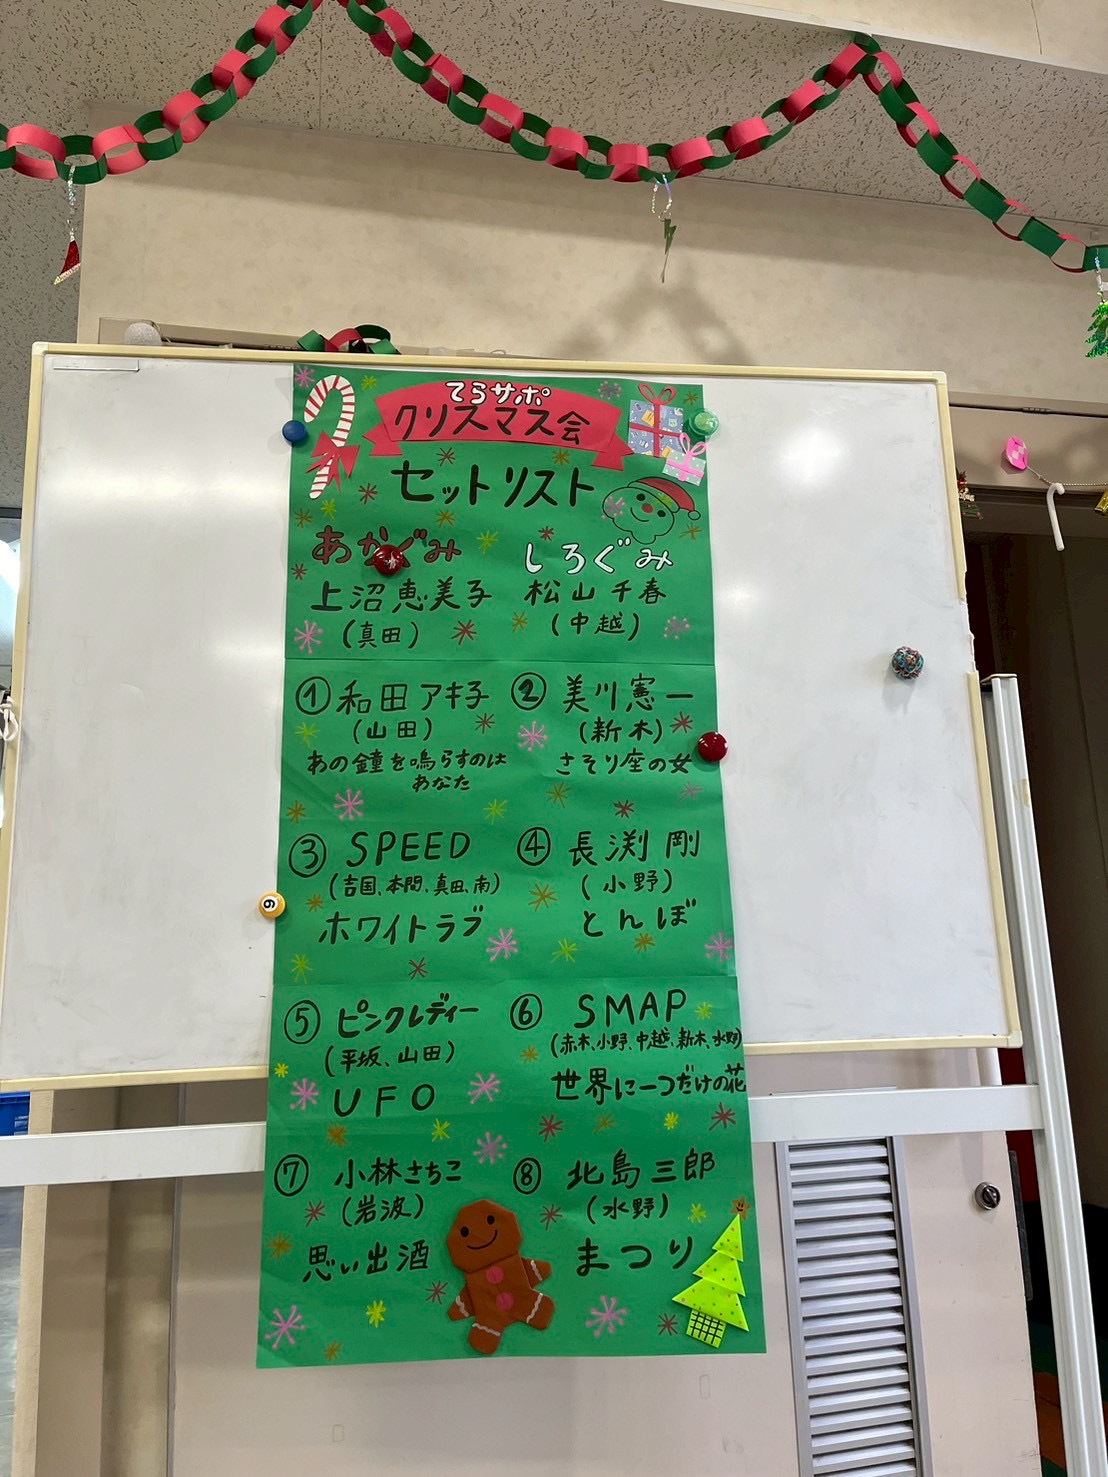 てらサポ
クリスマス会
セットリスト
あかぐみ
上沼恵美子
(真田)
しろぐみ
松山千春
(中越)
①和田アキ子
(山田)
あの鐘を鳴らすのは
あなた
②美川憲一
(新木)
さそり座の女
③SPEED
(吉国、本間、真田、南)
ホワイトラブ
④長渕 剛
(小野)
とんぼ
⑤ピンクレディー
(平坂、山田)
UFO
⑥SMAP
(赤木、小野、中越、新木、水野)
世界に一つだけの花
⑦小林さちこ
(岩波)
思い出酒
⑧北島三郎
(水野)
まつり
9